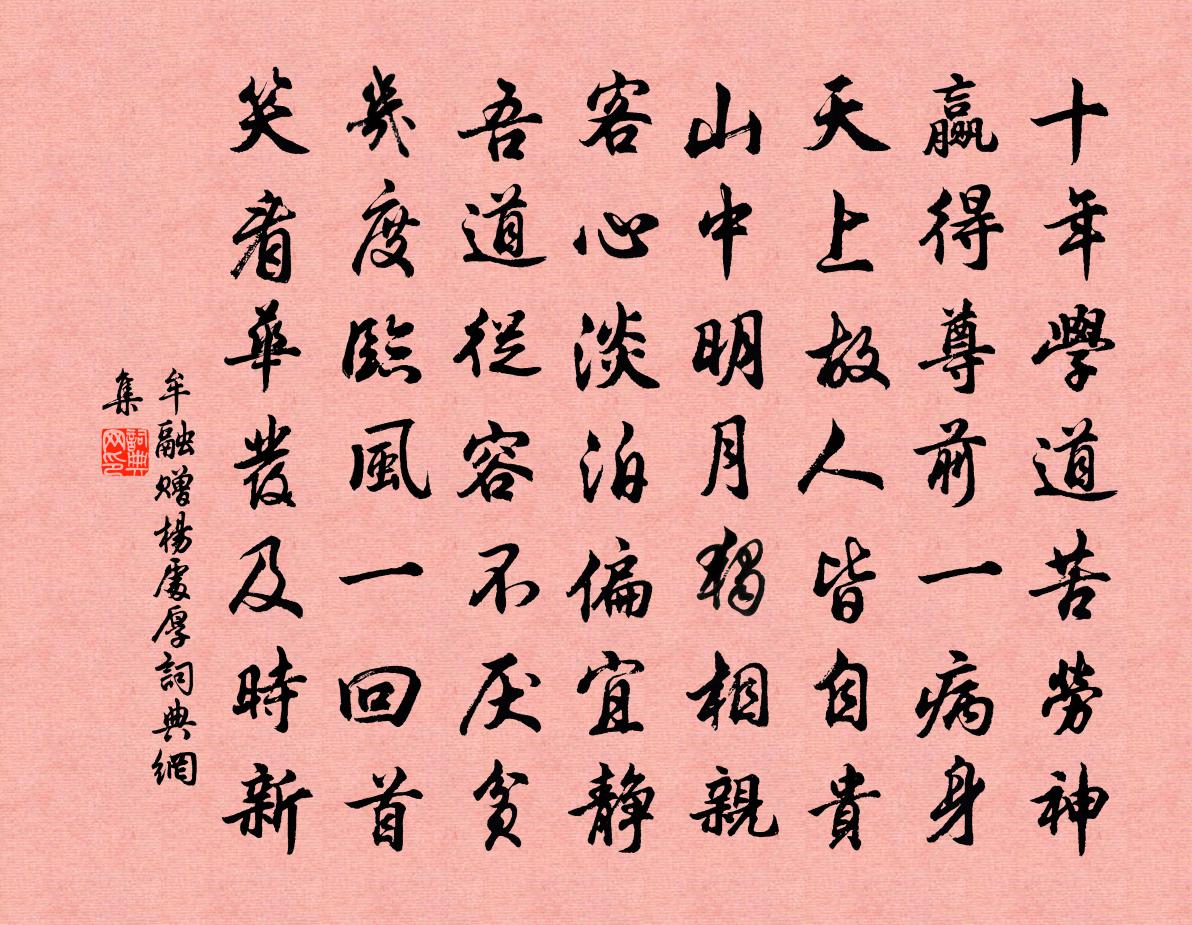 十年學道苦勞神
贏得尊前一病身
天上故人皆自貴
山中明月獨相親
客心淡泊偏宜靜
吾道從容不厌貧
幾度臨風一回首
笑看華發及時新
牟融贈楊處厚詞典網
集
詞典网印